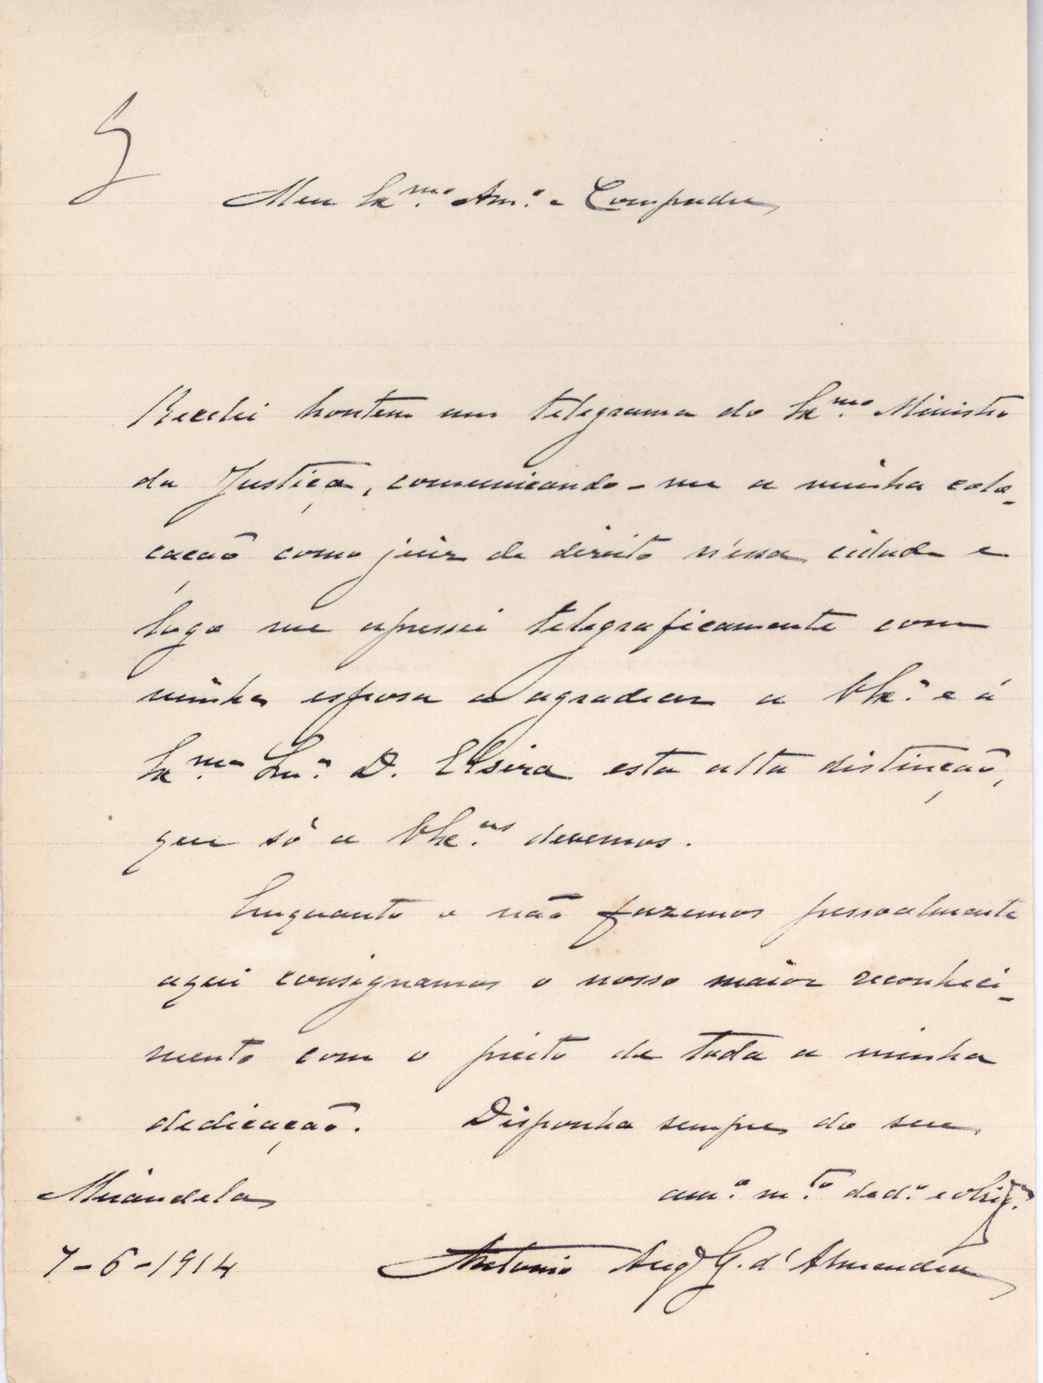 Meu Ex.mo Am.o e Compadre
Recebi hontem um telegrama do Ex.mo Ministro
da Justiça, comunicando-me a minha colo-
cação como juiz de direito n'essa cidade e
logo me apressei telegraficamente com
minha esposa a agradecer a VEx.a e á
Ex.ma Sn.a D. Elsira esta alta distinção,
que só a VEx.as devemos.
Emquanto o não fazemos pessoalmente
aqui consignamos o nosso maior reconheci-
mento com o preito de toda a minha
dedicação. Disponha sempre do seu
Mirandela am.o m.to ded.o e obrig.mo
7-6-1914 Antonio Aug.o G. d'Almendra